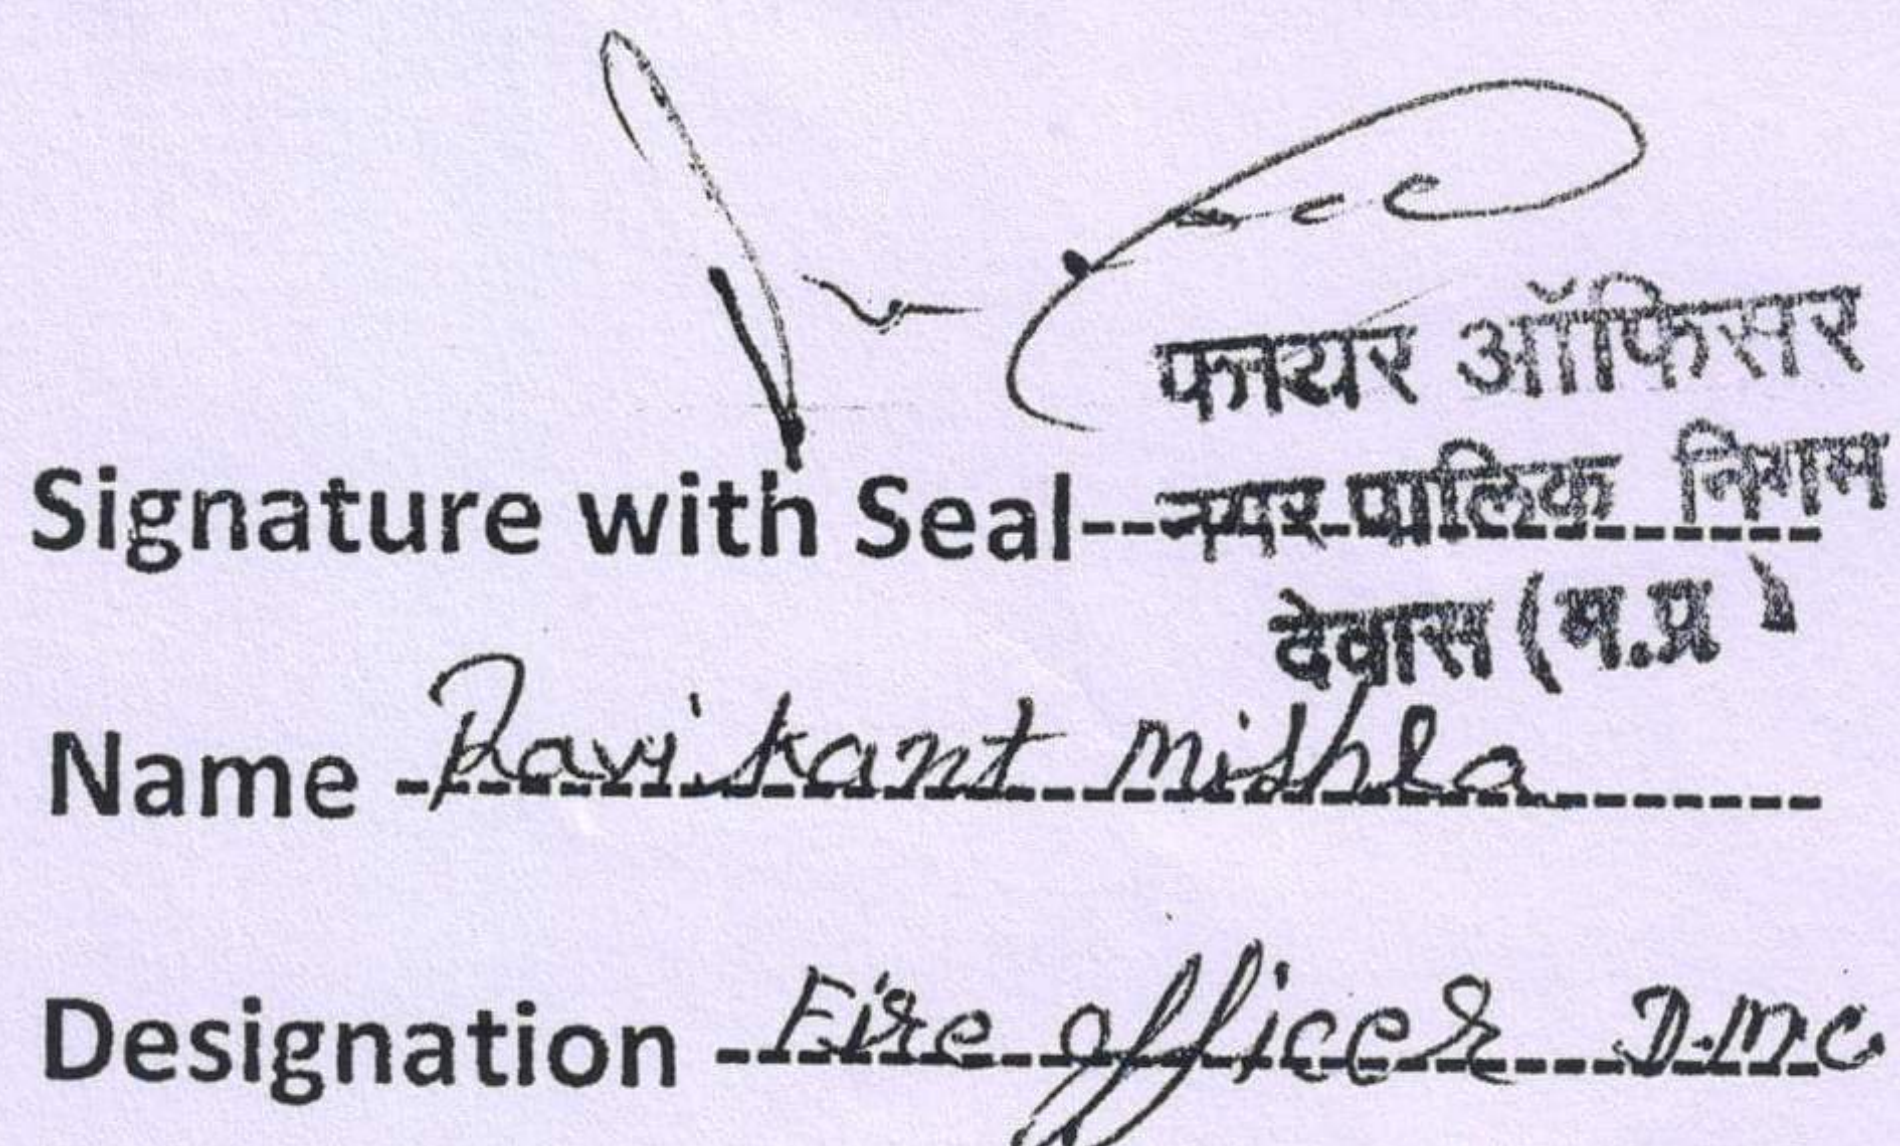 फायर ऑफिसर
Signature with Seal-- नगर पालिक निगम
देवास (म.प्र )
Name Ravi kant Mishra
Designation Fire officer D.M.C.